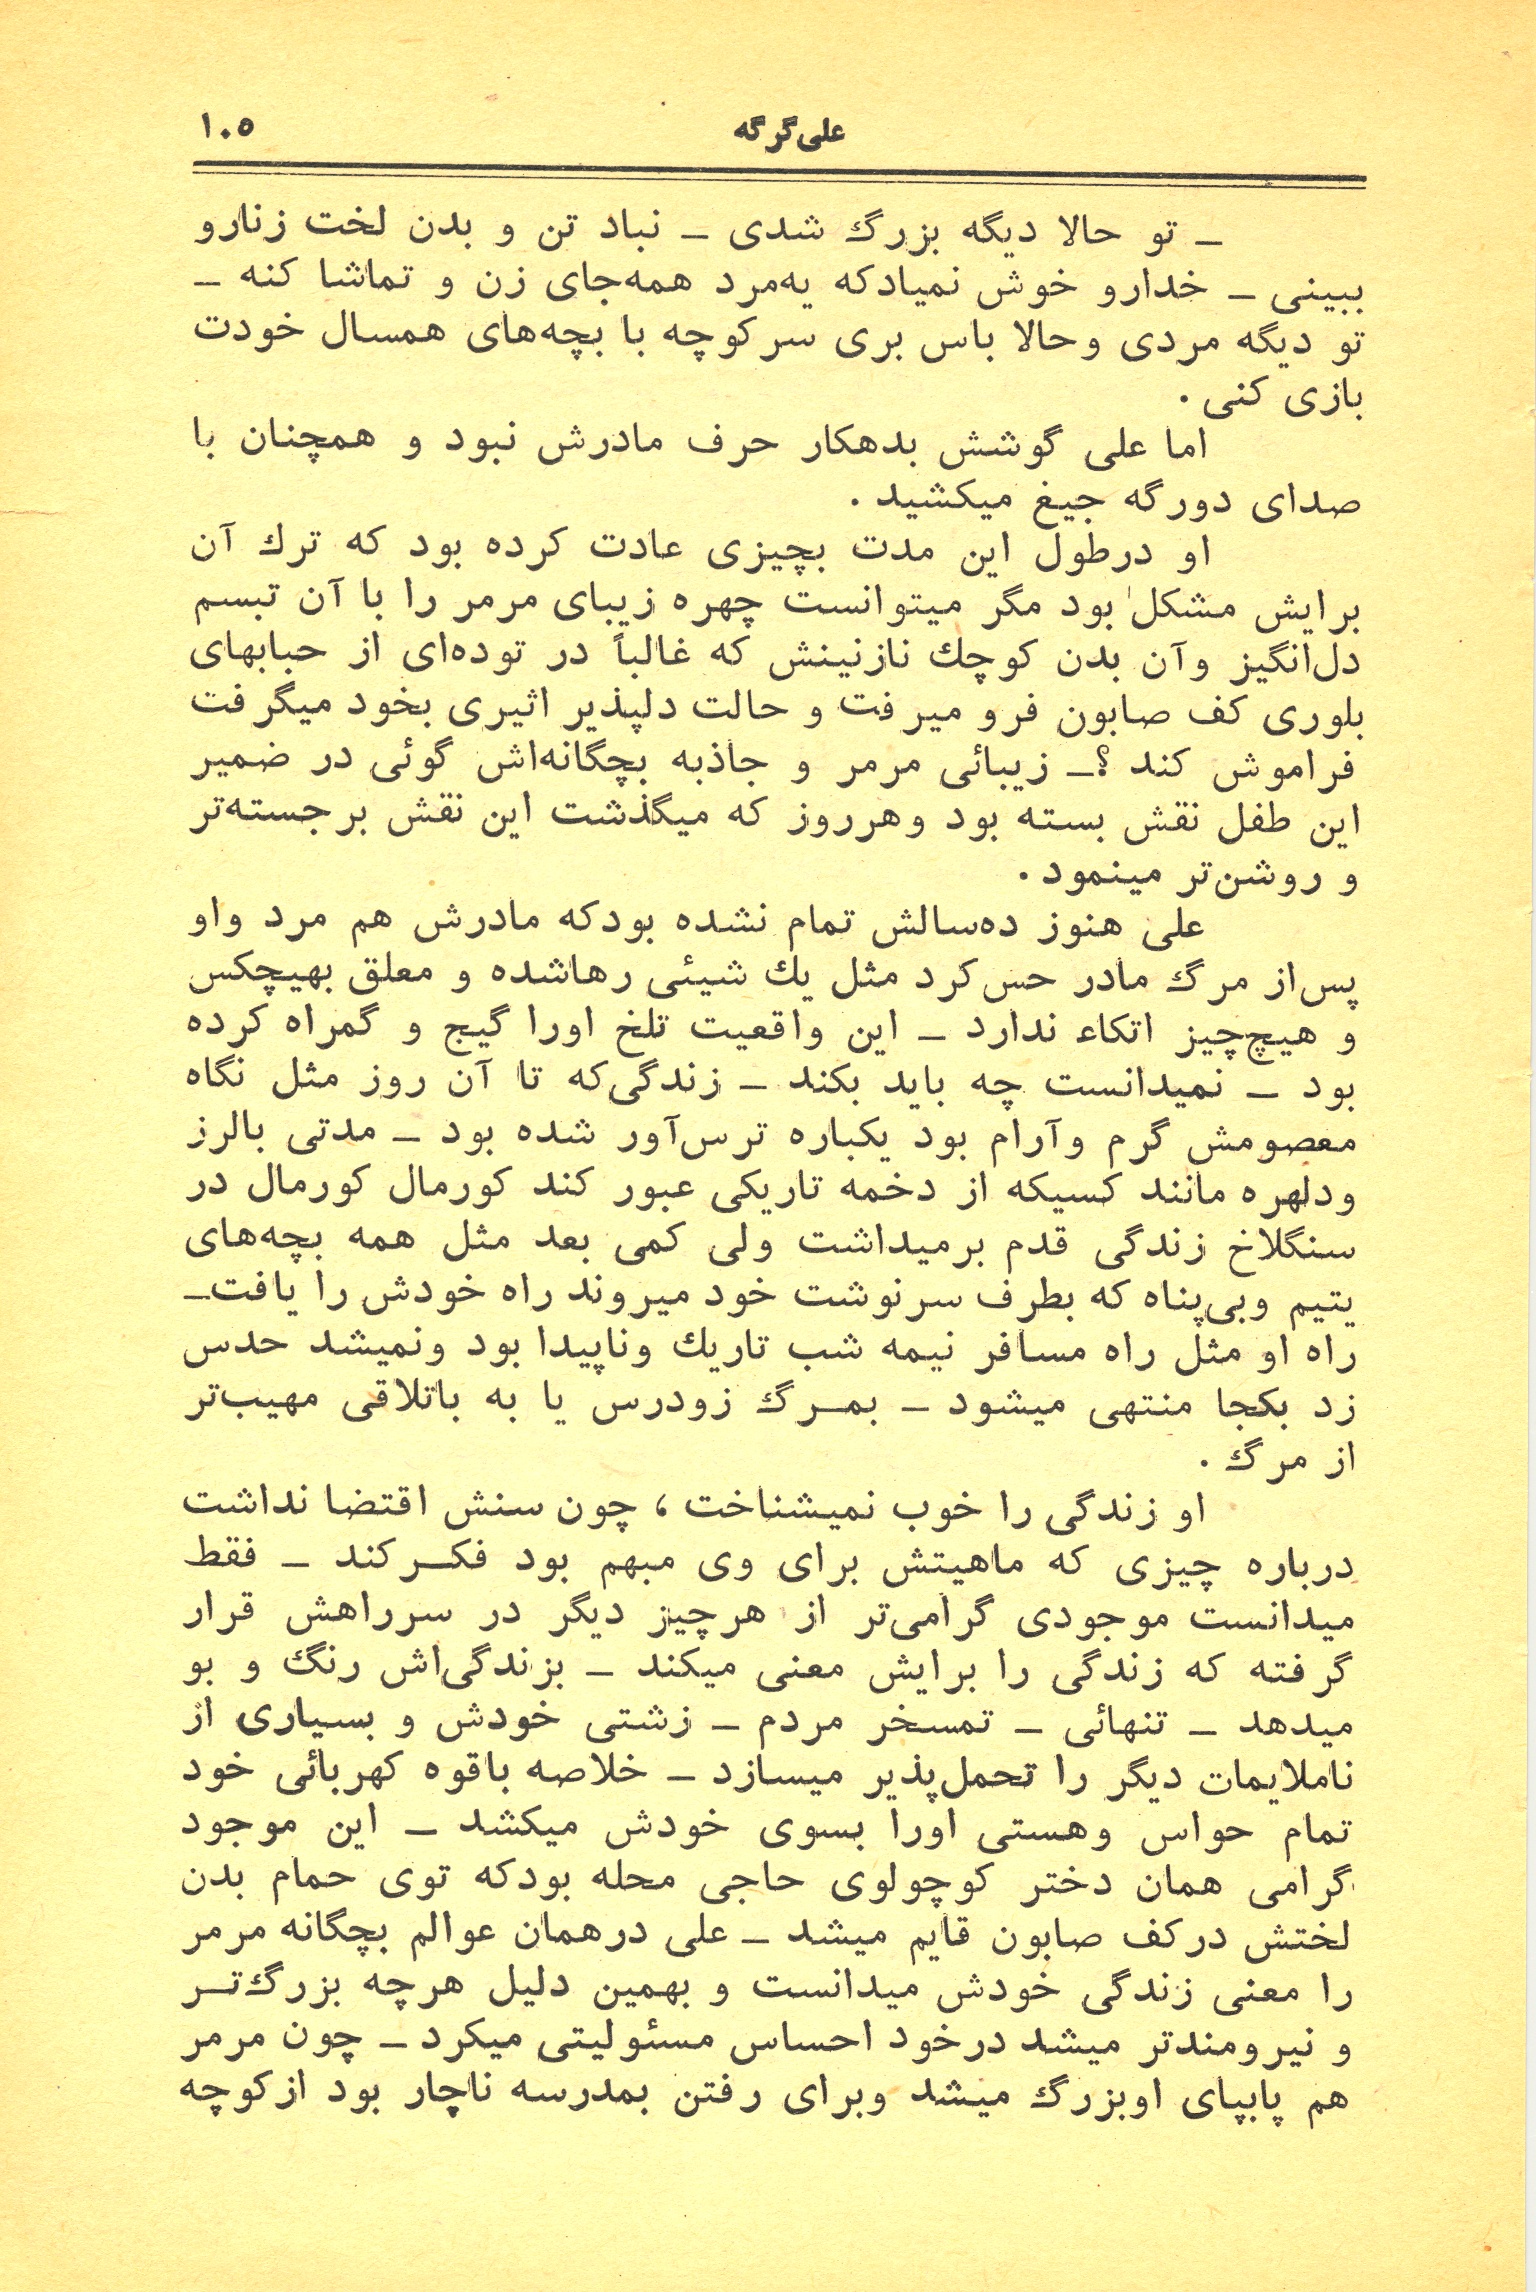 علی‌گرگه
۱۰۵
ـ تو حالا دیگه بزرگ شدی ـ نباد تن و بدن لخت زنارو
ببینی ـ خدارو خوش نمیادکه یه‌مرد همه‌جای زن و تماشا کنه ـ
تو دیگه مردی وحالا باس بری سرکوچه با بچه‌های همسال خودت
بازی کنی .
اما علی گوشش بدهکار حرف مادرش نبود و همچنان با
صدای دورگه جیغ میکشید .
او درطول این مدت بچیزی عادت کرده بود که ترك آن
برایش مشکل بود مگر میتوانست چهره زیبای مرمر را با آن تبسم
دل‌انگیز وآن بدن کوچك نازنینش که غالباً در توده‌ای از حبابهای
بلوری کف صابون فرو میرفت و حالت دلپذیر اثیری بخود میگرفت
فراموش کند ؟ـ زیبائی مرمر و جاذبه بچگانه‌اش گوئی در ضمیر
این طفل نقش بسته بود وهرروز که میگذشت این نقش برجسته‌تر
و روشن‌تر مینمود .
علی هنوز ده‌سالش تمام نشده بودکه مادرش هم مرد واو
پس‌از مرگ مادر حس‌کرد مثل یك شیئی رهاشده و معلق بهیچکس
و هیچ‌چیز اتکاء ندارد ـ این واقعیت تلخ اورا گیج و گمراه کرده
بود ـ نمیدانست چه باید بکند ـ زندگی‌که تا آن روز مثل نگاه
معصومش گرم وآرام بود یکباره ترس‌آور شده بود ـ مدتی بالرز
ودلهره مانند کسیکه از دخمه تاریکی عبور کند کورمال کورمال در
سنگلاخ زندگی قدم برمیداشت ولی کمی بعد مثل همه بچه‌های
یتیم وبی‌پناه که بطرف سرنوشت خود میروند راه خودش را یافت‌ـ
راه او مثل راه مسافر نیمه شب تاریك وناپیدا بود ونمیشد حدس
زد بکجا منتهی میشود ـ بمـرگ زودرس یا به باتلاقی مهیب‌تر
از مرگ .
او زندگی را خوب نمیشناخت ، چون سنش اقتضا نداشت
درباره چیزی که ماهیتش برای وی مبهم بود فکـرکند ـ فقط
میدانست موجودی گرامی‌تر از هرچیز دیگر در سرراهش قرار
گرفته که زندگی را برایش معنی میکند ـ بزندگی‌اش رنگ و بو
میدهد ـ تنهائی ـ تمسخر مردم ـ زشتی خودش و بسیاری از
ناملایمات دیگر را تحمل‌پذیر میسازد ـ خلاصه باقوه کهربائی خود
تمام حواس وهستی اورا بسوی خودش میکشد ـ این موجود
گرامی همان دختر کوچولوی حاجی محله بودکه توی حمام بدن
لختش درکف صابون قایم میشد ـ علی درهمان عوالم بچگانه مرمر
را معنی زندگی خودش میدانست و بهمین دلیل هرچه بزرگ‌تـر
و نیرومندتر میشد درخود احساس مسئولیتی میکرد ـ چون مرمر
هم پابپای اوبزرگ میشد وبرای رفتن بمدرسه ناچار بود ازکوچه